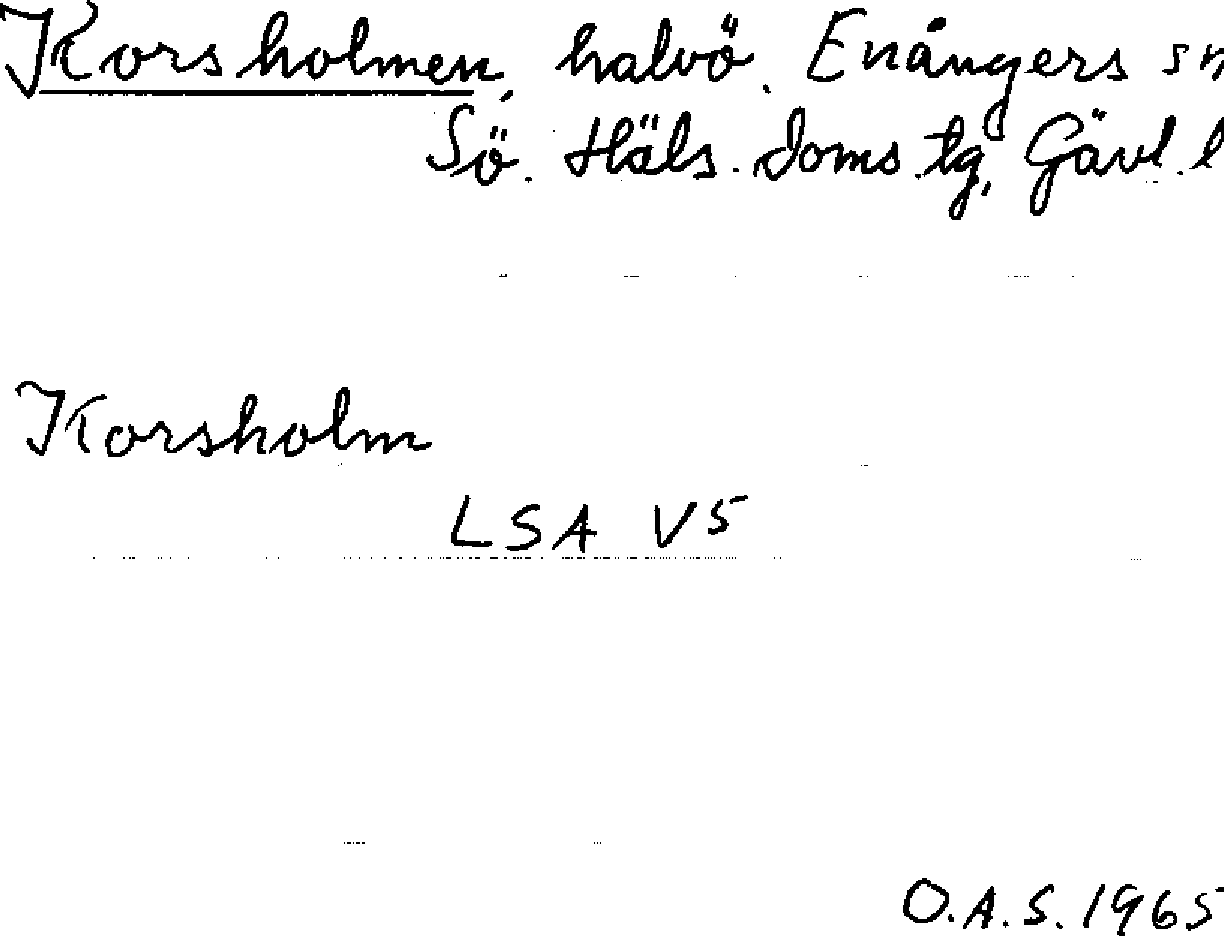 Korsholmen, halvö. Enångers sn
Sö. Häls. doms.tg, Gävl.l
Korsholm
LSA V5
O.A.S. 1965